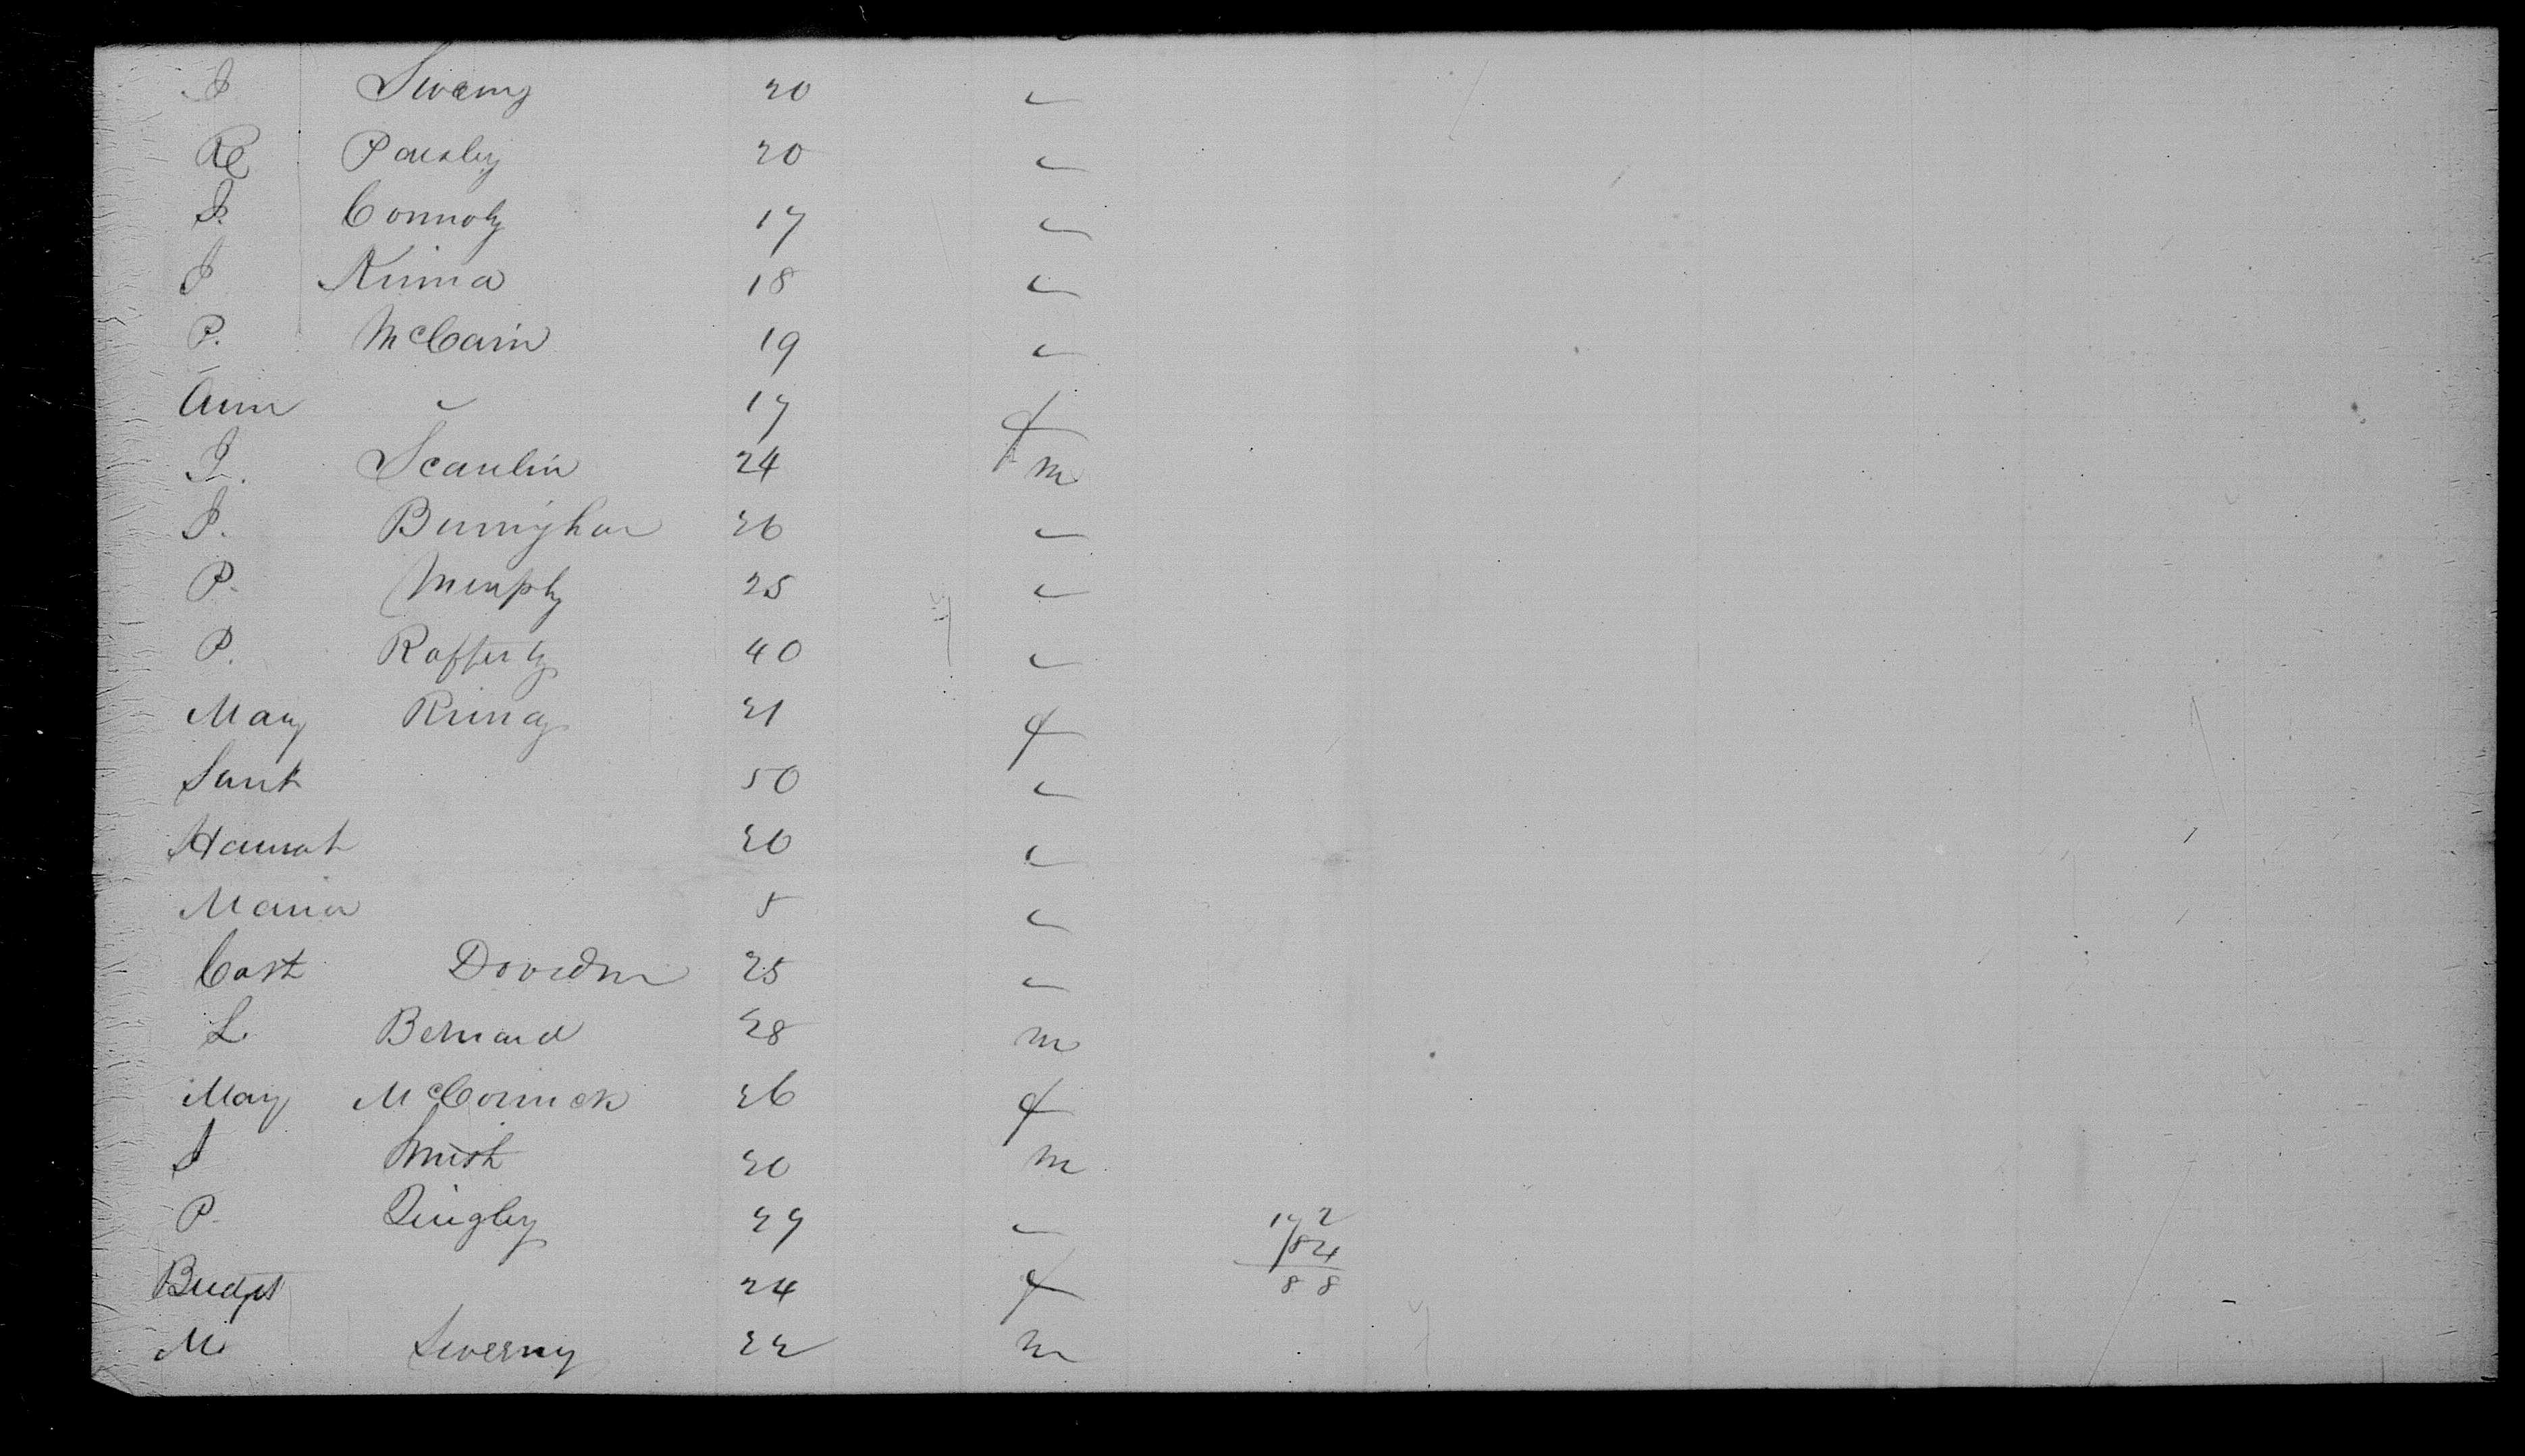 J Sweeny 20 "
Re Pausley 20 "
J. Connoly 17 "
J Kinna 18 "
P. McCain 19 "
Ann " 17 f
J. Scanlin 24 m
J. Burnighan 26 "
P. Murphy 25 "
P. Rafferty 40 "
Mary Rinny 21 f
50 "
Hannah 20 "
Maria 5 "
Cath 25 "
L. Bernard 28 m
Mary McCormick 26 f
J Smith 20 m
P. 27 "
Bridget 24 f
M. Sweeny 22 m